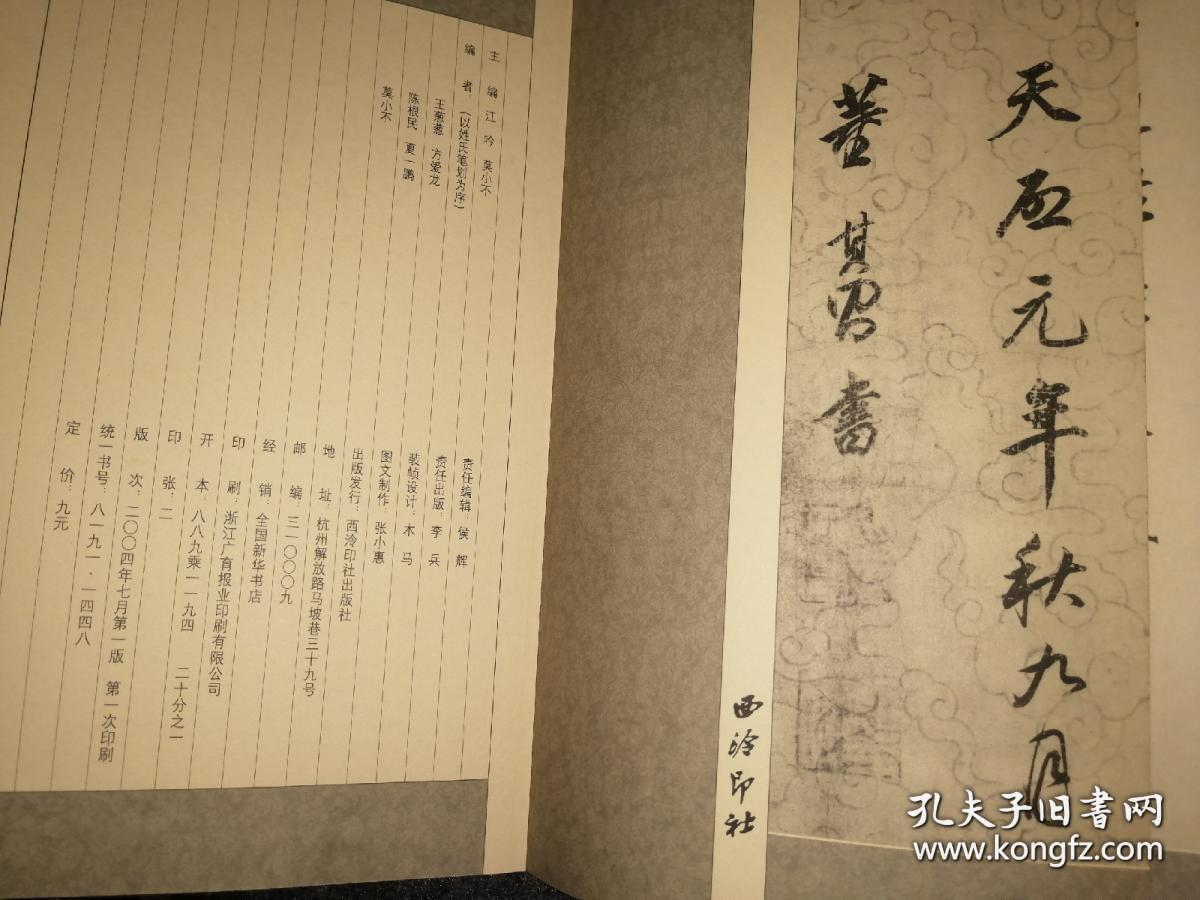 天启元年秋九月
董其昌书
西泠印社
主编 江吟 莫小不
编者 (以姓氏笔划为序)
王葱葱 方爱龙
陈根民 夏一鹏
莫小不
责任编辑 侯辉
责任出版:李兵
装帧设计:木马
图文制作:张小惠
出版发行:西泠印社出版社
地址:杭州解放路马坡巷三十九号
邮编:三一〇〇〇九
经销:全国新华书店
印刷:浙江广育报业印刷有限公司
开本:八八九乘一一九四 二十分之一
印张:二
版次:二〇〇四年七月第一版 第一次印刷
统一书号:八一九一·一四四八
定价:九元
孔夫子旧书网
www.kongfz.com